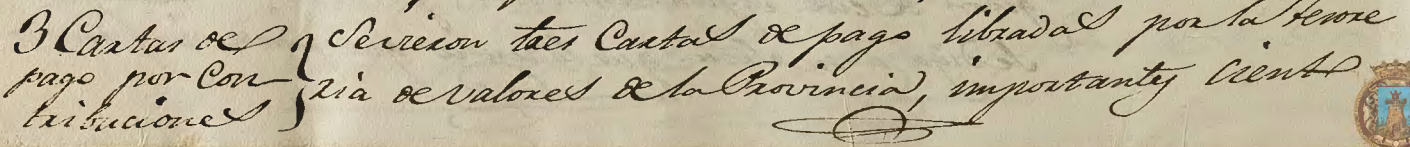 3 Cartas de
pago por Con-
tribuciones
Se vieron tres Cartas de pago libradas por la tesore
ria de valores de la Provincia, importantes cient